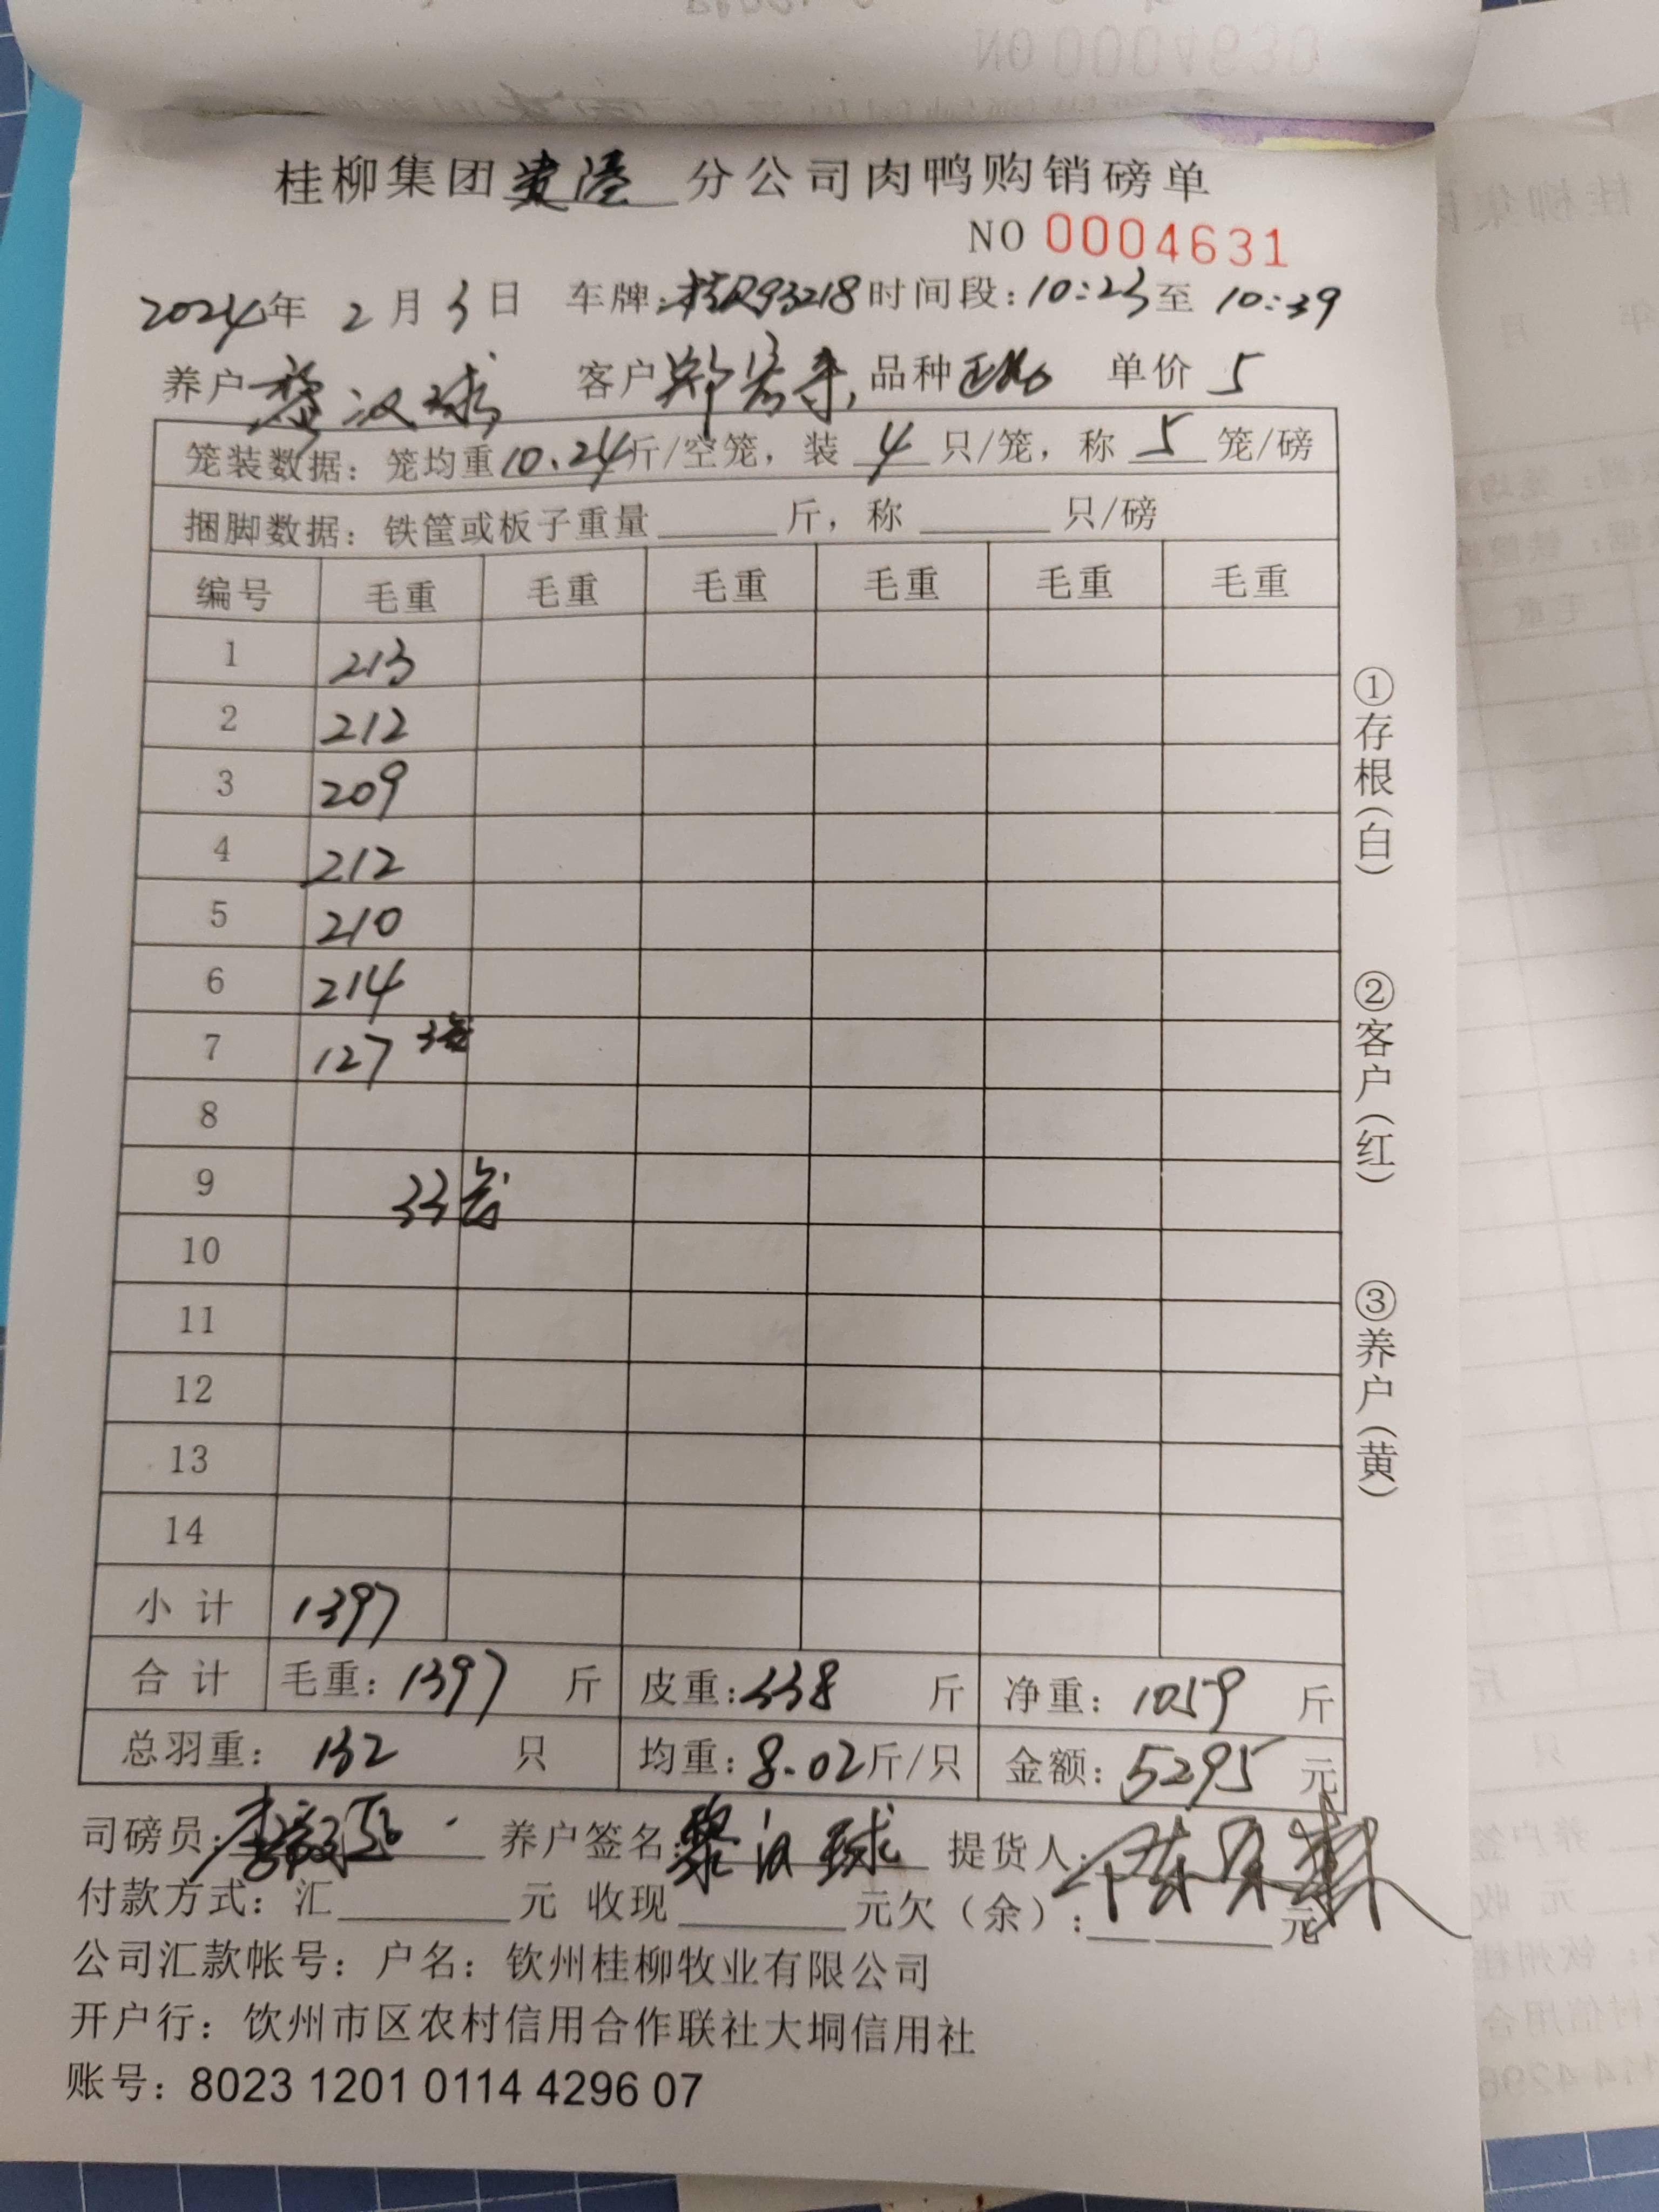 桂柳集团贵港分公司肉鸭购销磅单
NO 0004631
2024年 2月 3日 车牌:桂R93218 时间段:10:23至 10:39
养户 黎汉球 客户 郑 品种 单价 5
笼装数据: 笼均重10.24斤/空笼, 装 4 只/笼, 称 5 笼/磅
捆脚数据: 铁筐或板子重量 斤, 称 只/磅
编号 毛重 毛重 毛重 毛重 毛重 毛重
1 213
2 212
3 209
4 212
5 210
6 214
7 127 3笼
8
9 33笼
10
11
12
13
14
小 计 1397
合 计 毛重: 1397 斤 皮重:338 斤 净重: 1059 斤
总羽重: 132 只 均重: 8.02斤/只 金额: 5295 元
司磅员: 养户签名: 黎汉球 提货人:
付款方式: 汇 元 收现 元欠(余): 元
公司汇款帐号: 户名: 钦州桂柳牧业有限公司
开户行: 钦州市区农村信用合作联社大垌信用社
账号: 8023 1201 0114 4296 07
①存根(白)
②客户(红)
③养户(黄)